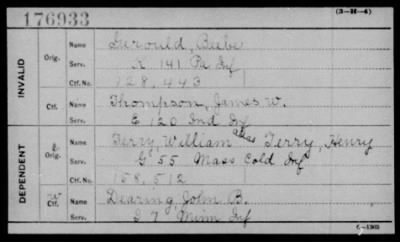 176933
(3-H-6)
INVALID
Orig.
Name Gerould, Beebe
Serv. K 141 Pa Inf
Ctf. No. 128,443
Ctf.
Name Thompson, James W.
Serv. E 120 Ind Inf
DEPENDENT
Orig.
Name Terry, William alias Terry, Henry
Serv. G 55 Mass Cold Inf
Ctf. No. 158,512
W
Ctf.
Name Dearing, John B.
Serv. 7 Minn Inf